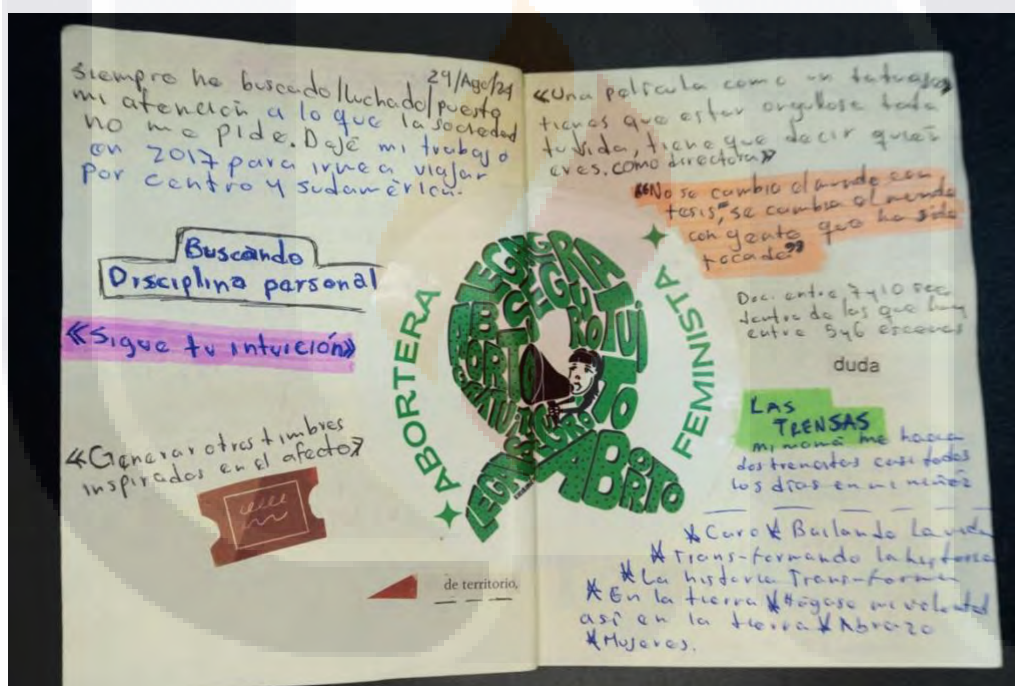 29/Ago/24
siempre he buscado/luchado/puesto
mi atención a lo que la sociedad
no me pide. Dejé mi trabajo
en 2017 para irme a viajar
por centro y sudamérica.
Buscando
Disciplina personal
«Sigue tu intuición»
«Generar otros timbres
inspirados en el afecto»
de territorio,
ABORTERA
FEMINISTA
ABORTO
«Una película como un tatuaje»
tienes que estar orgullosa toda
tu vida, tiene que decir quién
eres. como directora»
"No se cambia el mundo con
tesis, se cambia el mundo
con gente que ha sido
tocada"
Doc. entre 7 y 10 sec
dentro de las que hay
entre 5 y 6 escenas
duda
LAS
TRENSAS
mi mamá me hacía
dos trencitas casi todos
los días en mi niñez
* Caro * Bailando la vida
* Trans-formando la historia
* La historia Trans-forma
* En la tierra * Hágase mi voluntad
así en la tierra * Abrazo
* Mujeres.